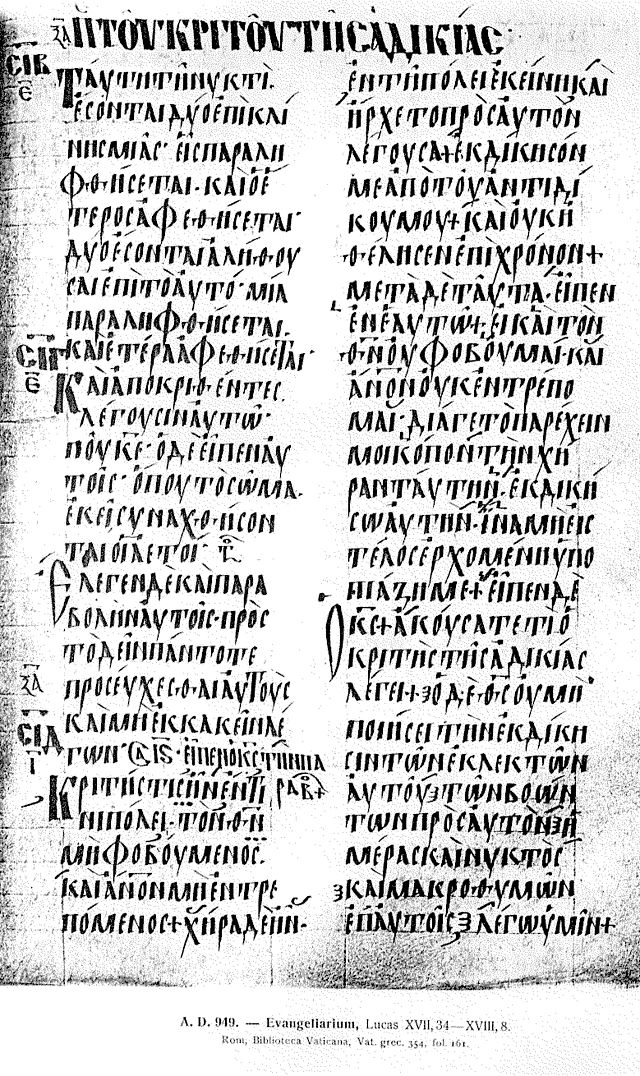 ΞΑ ΠΤΟΥΚΡΙΤΟΥΤΗϹΑΔΙΚΙΑϹ
ϹΙΒ
Ε
ΤΑΥΤΗΤΗΝΥΚΤΙ.
ΕϹΟΝΤΑΙΔΥΟΕΠΙΚΛΙ
ΝΗϹΜΙΑϹ· ΕΙϹΠΑΡΑΛΗ
ΦΘΗϹΕΤΑΙ·ΚΑΙΟΕ
ΤΕΡΟϹΑΦΕΘΗϹΕΤΑΙ·
ΔΥΟΕϹΟΝΤΑΙΑΛΗΘΟΥ
ϹΑΙΕΠΙΤΟΑΥΤΟ·ΜΙΑ
ΠΑΡΑΛΗΦΘΗϹΕΤΑΙ.
ΚΑΙΕΤΕΡΑΑΦΕΘΗϹΕΤΑΙ·
ϹΙΓ
Ε
ΚΑΙΑΠΟΚΡΙΘΕΝΤΕϹ
ΛΕΓΟΥϹΙΝΑΥΤΩ·
ΠΟΥΚΕ·ΟΔΕΕΙΠΕΝΑΥ
ΤΟΙϹ·ΟΠΟΥΤΟϹΩΜΑ.
ΕΚΕΙϹΥΝΑΧΘΗϹΟΝ
ΤΑΙΟΙΑΕΤΟΙ·
ΕΛΕΓΕΝΔΕΚΑΙΠΑΡΑ
ΒΟΛΗΝΑΥΤΟΙϹ·ΠΡΟϹ
ΤΟΔΕΙΝΠΑΝΤΟΤΕ
ΞΑ
ΠΡΟϹΕΥΧΕϹΘΑΙΑΥΤΟΥϹ
ΚΑΙΜΗΕΚΚΑΚΕΙΝΛΕ
ϹΙΔ
Ι
ΓΩΝ· ΕΙΠΕΝΟΚϹΤΗΝΠΑ
ΡΑΒ+
ΚΡΙΤΗϹΤΙϹΗΝΕΝΤΙ
ΝΙΠΟΛΕΙ·ΤΟΝΘΝ
ΜΗΦΟΒΟΥΜΕΝΟϹ.
ΚΑΙΑΝΟΝΜΗΕΝΤΡΕ
ΠΟΜΕΝΟϹ+ΧΗΡΑΔΕΗΝ·
ΕΝΤΗΠΟΛΕΙΕΚΕΙΝΗΚΑΙ
ΗΡΧΕΤΟΠΡΟϹΑΥΤΟΝ
ΛΕΓΟΥϹΑ+ΕΚΔΙΚΗϹΟΝ
ΜΕΑΠΟΤΟΥΑΝΤΙΔΙ
ΚΟΥΜΟΥ+ΚΑΙΟΥΚΗ
ΘΕΛΗϹΕΝΕΠΙΧΡΟΝΟΝ+
ΜΕΤΑΔΕΤΑΥΤΑ·ΕΙΠΕΝ
ΕΝΕΑΥΤΩ+ΕΙΚΑΙΤΟΝ
ΘΝΟΥΦΟΒΟΥΜΑΙ·ΚΑΙ
ΑΝΟΝΟΥΚΕΝΤΡΕΠΟ
ΜΑΙ·ΔΙΑΓΕΤΟΠΑΡΕΧΕΙΝ
ΜΟΙΚΟΠΟΝΤΗΝΧΗ
ΡΑΝΤΑΥΤΗΝ·ΕΚΔΙΚΗ
ϹΩΑΥΤΗΝ·ΙΝΑΜΗΕΙϹ
ΤΕΛΟϹΕΡΧΟΜΕΝΗΥΠΟ
ΠΙΑΖΗΜΕ+ΕΙΠΕΝΔΕ
ΟΚϹ+ΑΚΟΥϹΑΤΕΤΙΟ
ΚΡΙΤΗϹΤΗϹΑΔΙΚΙΑϹ
ΛΕΓΕΙ+ΟΔΕΘϹΟΥΜΗ
ΠΟΙΗϹΕΙΤΗΝΕΚΔΙΚΗ
ϹΙΝΤΩΝΕΚΛΕΚΤΩΝ
ΑΥΤΟΥΤΩΝΒΟΩΝ
ΤΩΝΠΡΟϹΑΥΤΟΝΗ
ΜΕΡΑϹΚΑΙΝΥΚΤΟϹ
ΚΑΙΜΑΚΡΟΘΥΜΩΝ
ΕΠΑΥΤΟΙϹΛΕΓΩΥΜΙΝ+
A. D. 949. — Evangeliarium, Lucas XVII, 34—XVIII, 8.
Rom, Biblioteca Vaticana, Vat. grec. 354, fol. 161.